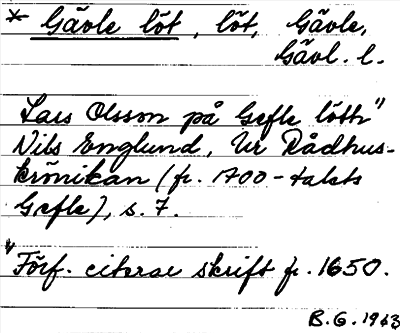 * Gävle löt, löt, Gävle,
Gävl. l.
Lars Olsson på Gefle löth"
Nils Englund, Ur Rådhus-
krönikan (fr. 1700-talets
Gefle), s. 7.
" Förf. citerar skrift fr. 1650.
B.G. 1963